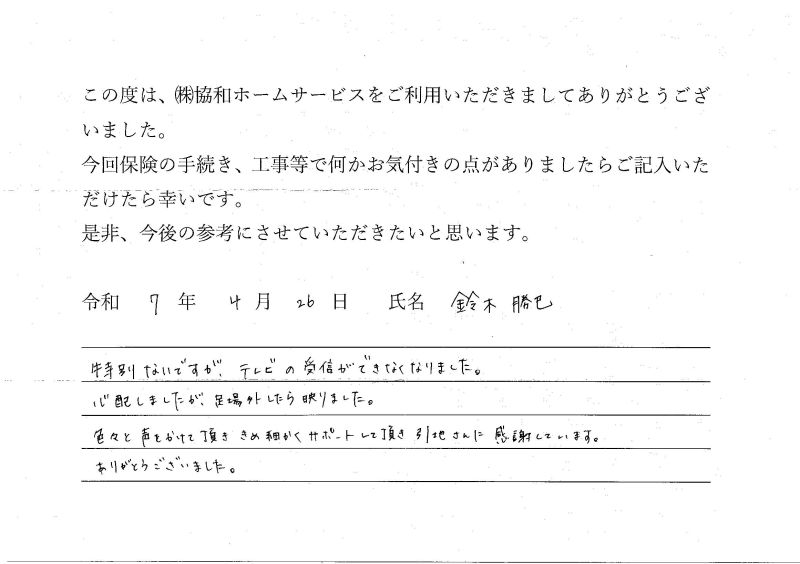 この度は、㈱協和ホームサービスをご利用いただきましてありがとうござ
いました。
今回保険の手続き、工事等で何かお気付きの点がありましたらご記入いた
だけたら幸いです。
是非、今後の参考にさせていただきたいと思います。
令和 7 年 4 月 26 日 氏名 鈴木 勝巳
特別ないですが、テレビの受信ができなくなりました。
心配しましたが、足場外したら映りました。
色々と声をかけて頂ききめ細かくサポートして頂き引地さんに感謝しています。
ありがとうございました。